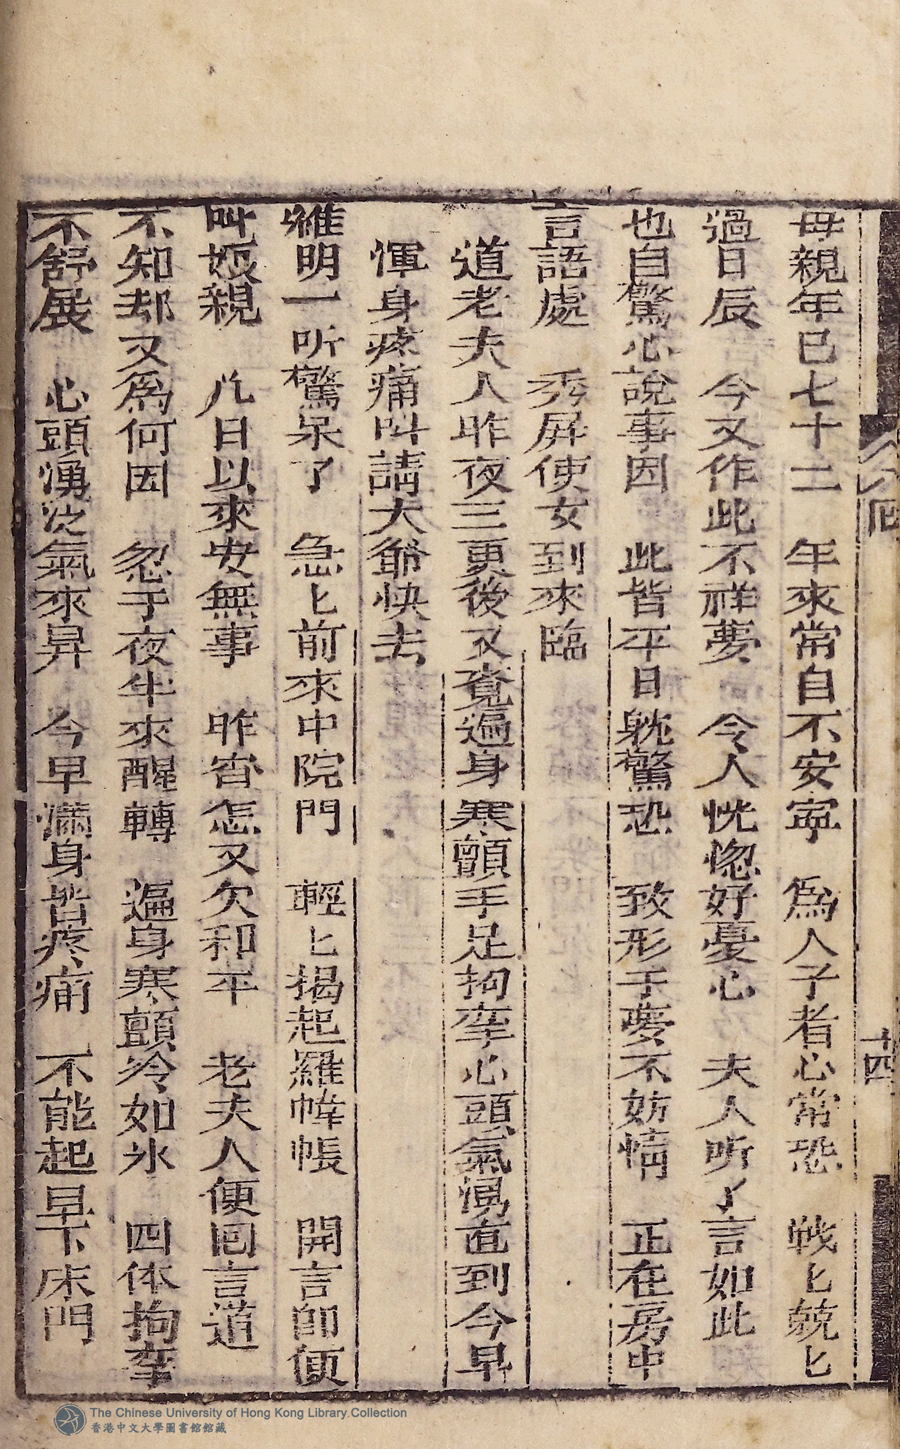 母親年已七十二　年來常自不安寧　爲人子者心常恐　戰〻兢〻
過日辰　今又作此不祥夢　令人恍惚好憂心　夫人听了言如此
也自驚心說事因　此皆平日躭驚恐　致形于夢不妨情　正在房中
言語處　秀屏使女到來臨
道老夫人昨夜三更後又覺遍身寒顫手足拘攣心頭氣湧直到今早
渾身疼痛叫請大爺快去
維明一听驚呆了　急〻前來中院門　輕〻揭起羅幃帳　開言即便
叫娘親　凢日以來安無事　昨宵怎又欠和平　老夫人便囘言道
不知却又爲何因　忽于夜半來醒轉　遍身寒顫冷如氷　四体拘攣
不舒展　心頭湧泛氣來昇　今早滿身皆疼痛　不能起早下床門
八回
十四
The Chinese University of Hong Kong Library Collection
香港中文大學圖書館館藏